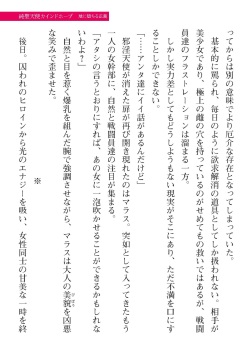 純悪天使カインドローブ 闇に堕ちる正義
ってからは別の意味でより厄介な存在となってしまっていた。
基本的に罵られ、毎日のように欲求解消の道具としてしか扱われない。相手が
美少女であり、極上の雌の穴を持っているのがせめてもの救いではあるが、戦闘
員達のフラストレーションは溜まる一方。
しかし実力差としてもどうしようもない現実がそこにあり、ただ不満を口にす
ることしかできない。
「……アンタ達にイイ話があるんだけど」
邪淫天使が消えた扉が再び開き現れたのはマラス。突如として入ってきたもう
一人の女幹部に、自然と戦闘員達の注目が集まる。
「アタシの言うとおりにすれば、あの女に一泡吹かせることができるかもしれな
いわよ？」
自然と目を惹く爆乳を組んだ腕で強調させながら、マラスは大人の美貌を凶悪
な笑みで歪ませた。
※
後日。囚われのヒロインから光のエナジーを吸い、女性同士の甘美な一時を終